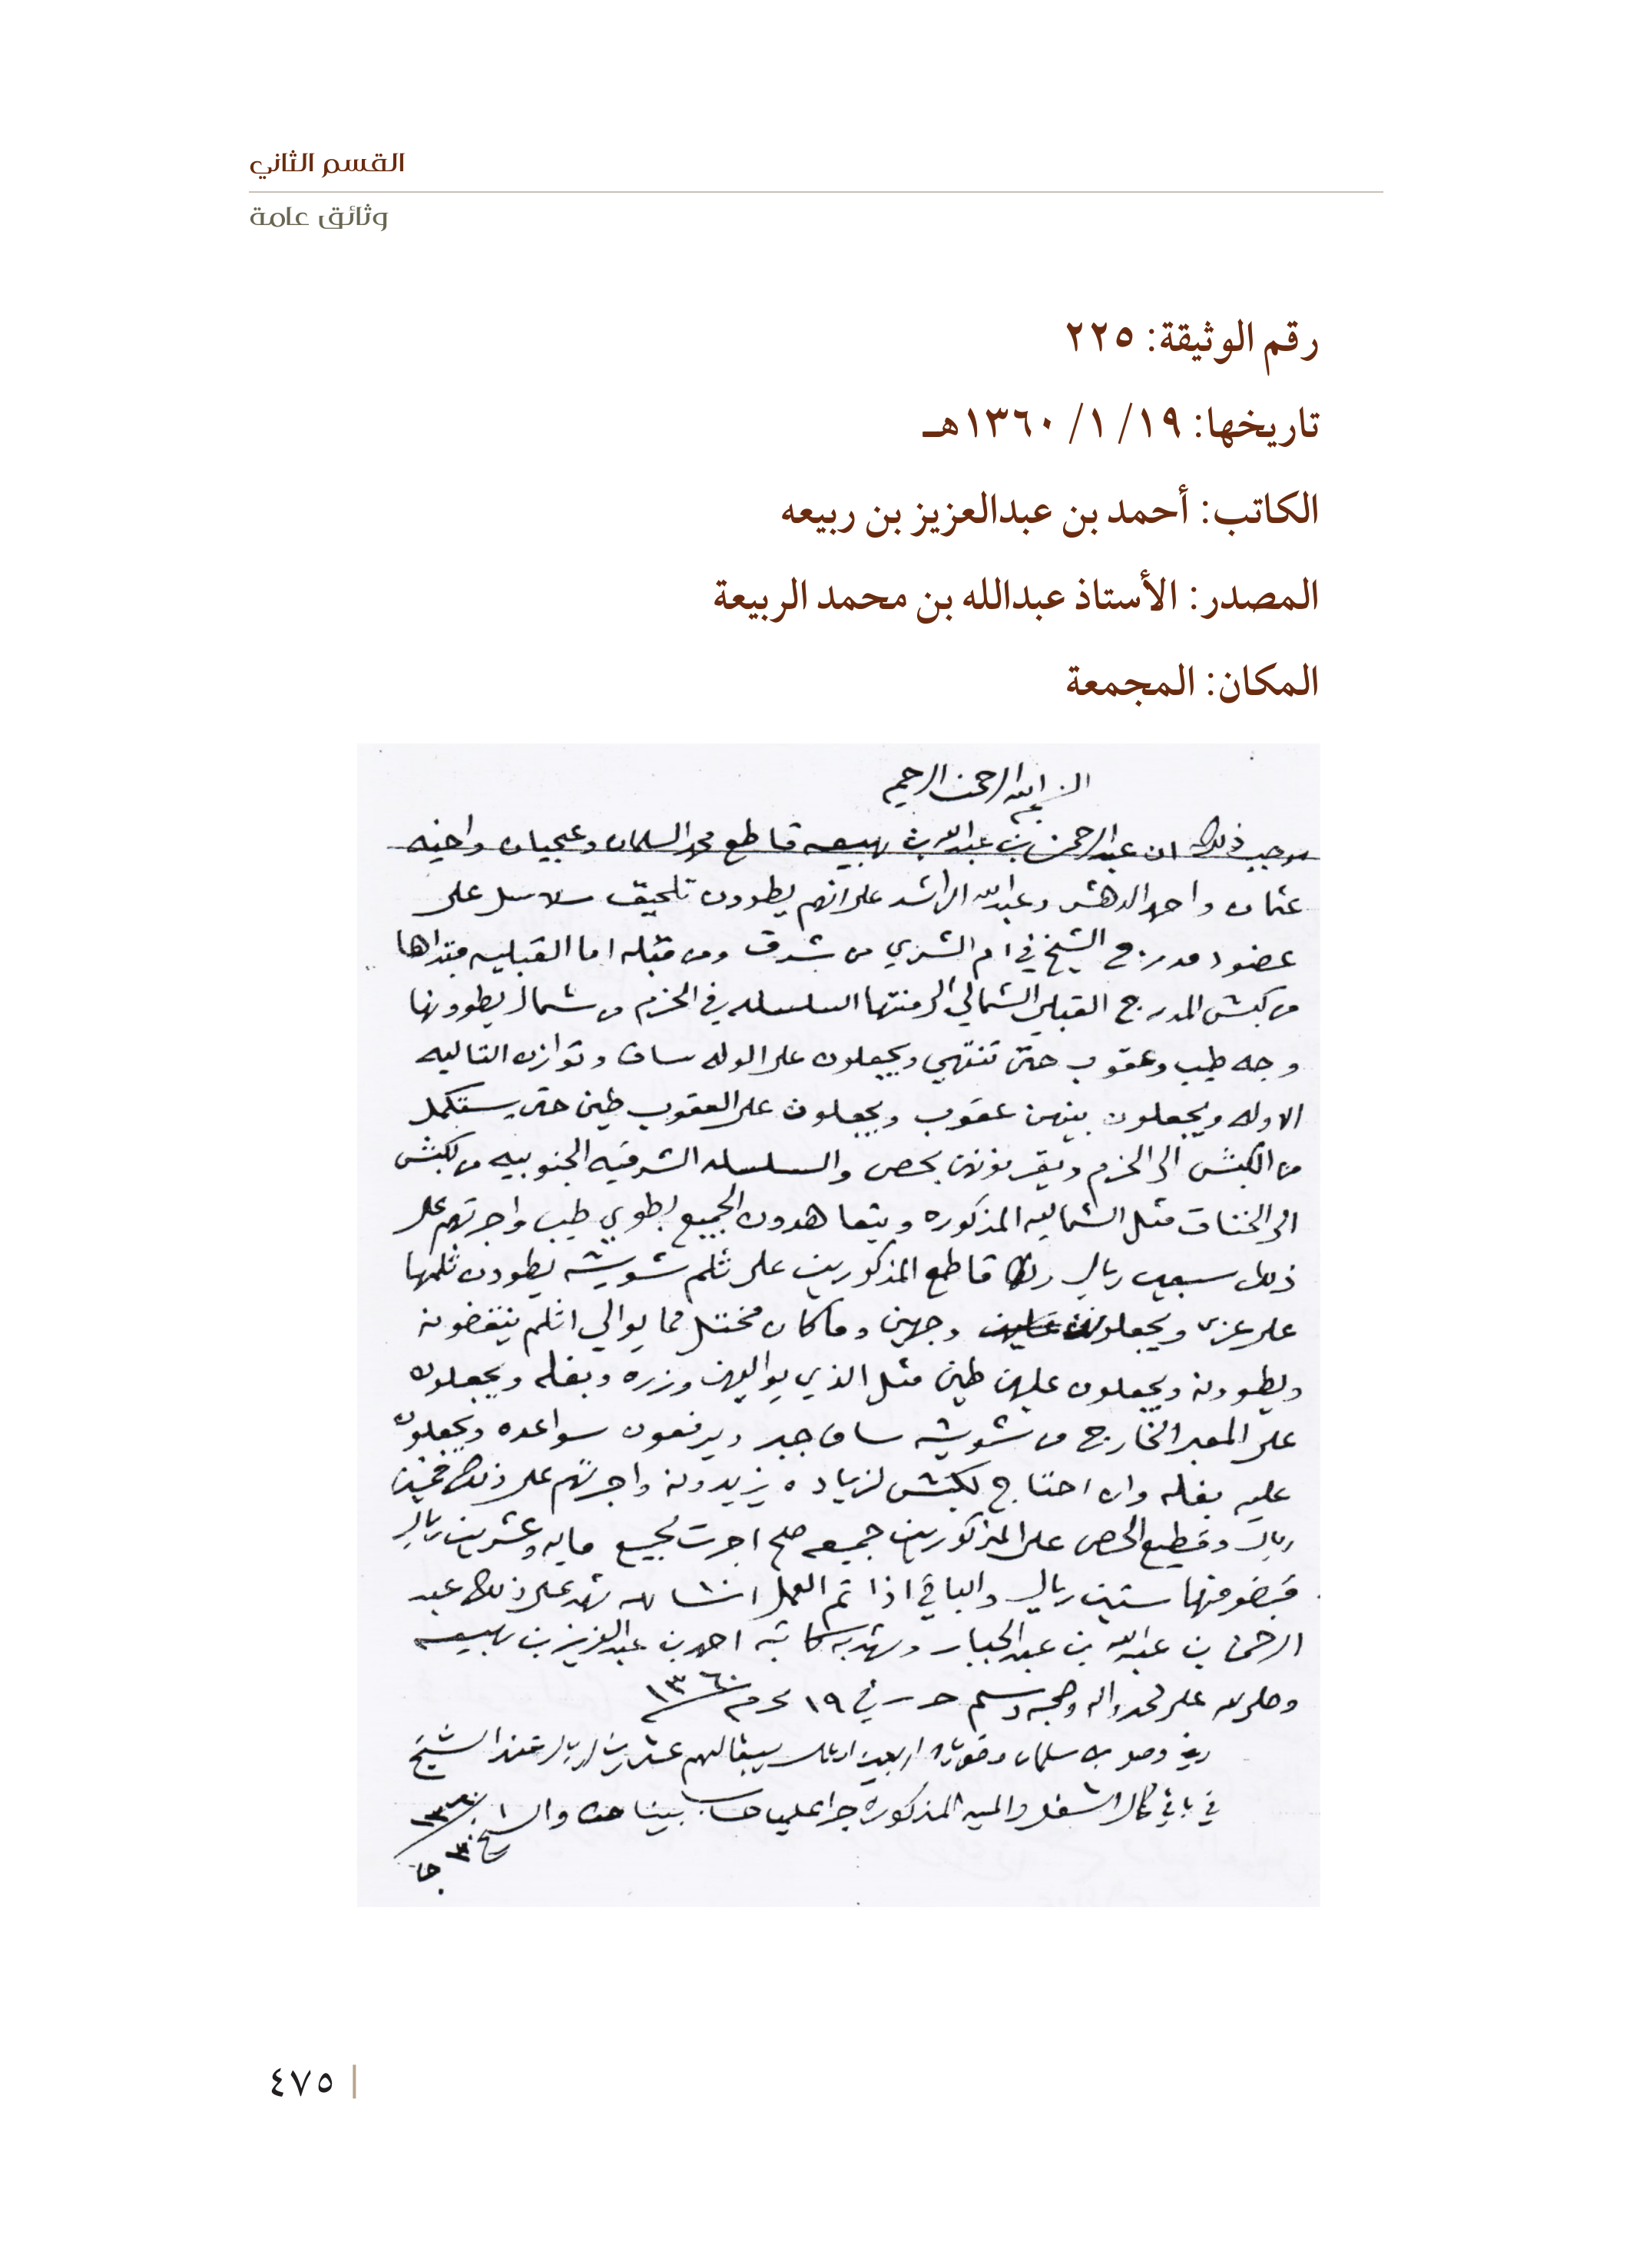 القسم الثاني
وثائق عامة
رقم الوثيقة: ٢٢٥
تاريخها: ١٩/ ١/ ١٣٦٠هـ
الكاتب: أحمد بن عبدالعزيز بن ربيعه
المصدر: الأستاذ عبدالله بن محمد الربيعة
المكان: المجمعة
الله الرحمن الرحيم
موجب ذلك ان عبدالرحمن بن عبدالله بن ربيعه قاطع محمد السلمان وعجيان واخيه
عثمان واحمد الدهش وعبدالله الراشد على انهم يطوون تلحيق سلاسل على
عضود مدرج الشيخ في ام الشري من شرق ومن قبله اما القبليه مبتداها
من كبش المدرج القبلي الشمالي الى منتها السلسله في الحزم من شمال يطوونها
وجه طيب وعقوب حتى تنتهي ويجعلون على الوله ساف وتوازن التاليه
الاوله ويجعلون بينهن عقوب ويجعلون على العقوب طين حتى يستكمل
من الكبش الى الحزم بحص والسلسله الشرقيه الجنوبيه من كبش
الى الخناق مثل الشماليه المذكوره ويتعاهدون الجميع بطوي طيب واجرتهم على
ذلك سبعين ريال قاطع المذكورين على ثلم شويشه يطوون ثلمها
على عزى ويجعلون وجهين وماكان مختل مما يوالي اثلم ينقضونه
ويطوونه ويجعلون عليهن طين مثل الذي يواليهن وزره وبغله ويجعلون
على المعبر الخارج من شويشه ساف جيد ويرفعون سواعده ويجعلون
عليه بغله وان احتاج لكبش لزياده يزيدونه واجرتهم على ذلك خمسين
ريال وقطيع الحص على المذكورين جميعه صح اجرت الجميع مايه وعشرين ريال
قبضو منها ستين ريال والباقي اذا تم العمل انشا لله شهد على ذلك عبد
الرحمن بن عبدالله بن عبدالجبار وشهد به كاتبه احمد بن عبدالعزيز بن ربيعه
وصلى لله على محمد واله وصحبه وسلم حرر في ١٩ محرم ١٣٦٠
سلمان اربعين ريال يبقالهم عشرين اريال عند الشيخ
في باقي كمال الشغل والميه المذكوره جرا عليها حساب بيننا والشيخ
١٣٦٠